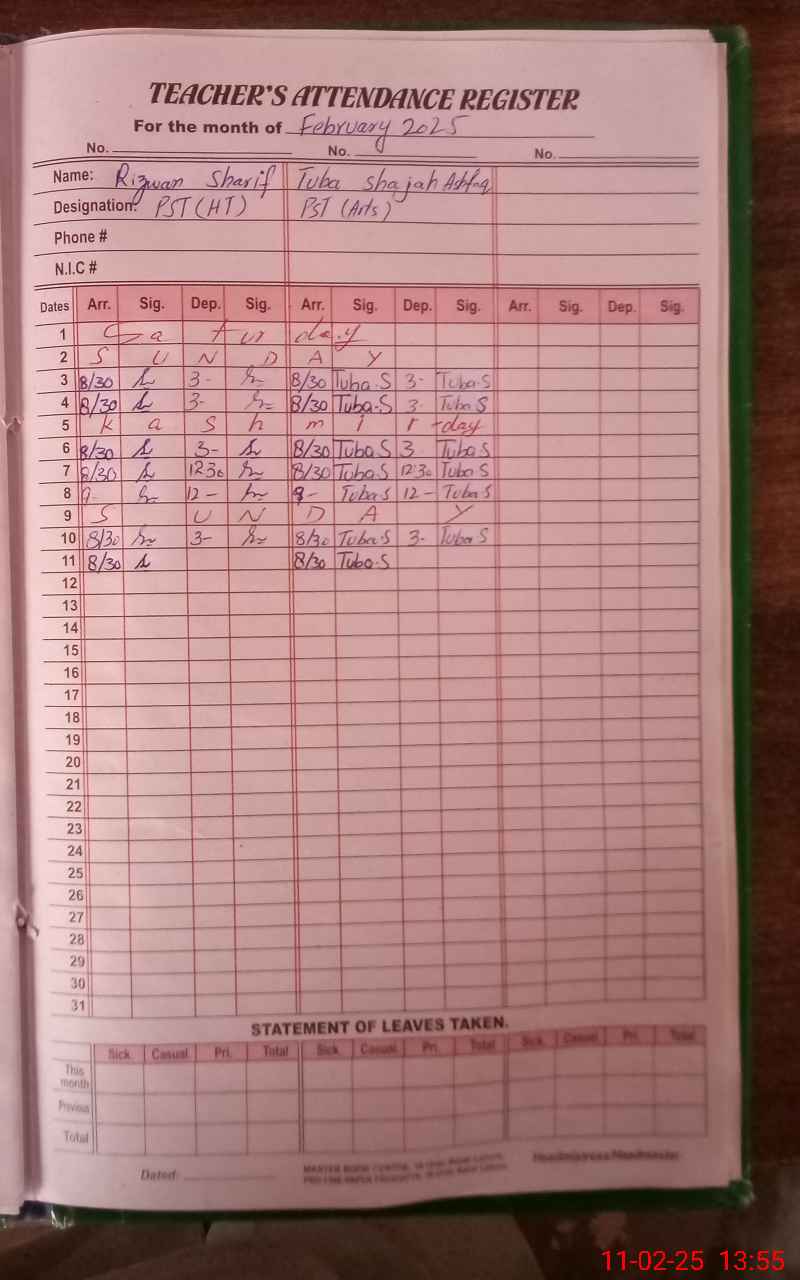 TEACHER'S ATTENDANCE REGISTER
For the month of February 2025
No. No. No.
Name: Rizwan Sharif Tuba Shajah Ashfaq
Designation: PST (HT) PST (Arts)
Phone #
N.I.C #
Dates Arr. Sig. Dep. Sig. Arr. Sig. Dep. Sig. Arr. Sig. Dep. Sig.
1 Saturday
2 S U N D A Y
3 8/30 3- 8/30 Tuba.S 3- Tuba.S
4 8/30 3- 8/30 Tuba.S 3- Tuba S
5 K a s h m i r -day
6 8/30 3- 8/30 Tuba S 3 Tuba S
7 8/30 1230 8/30 Tuba S 12:30 Tuba S
8 9- 12- 9- Tuba S 12- Tuba S
9 S U N D A Y
10 8/30 3- 8/30 Tuba.S 3- Tuba S
11 8/30 8/30 Tuba.S
12
13
14
15
16
17
18
19
20
21
22
23
24
25
26
27
28
29
30
31
STATEMENT OF LEAVES TAKEN.
Sick Casual Pri. Total Sick Casual Pri. Total Sick Casual Pri. Total
This month
Previous
Total
Dated:
Headmistress/Headmaster
11-02-25 13:55